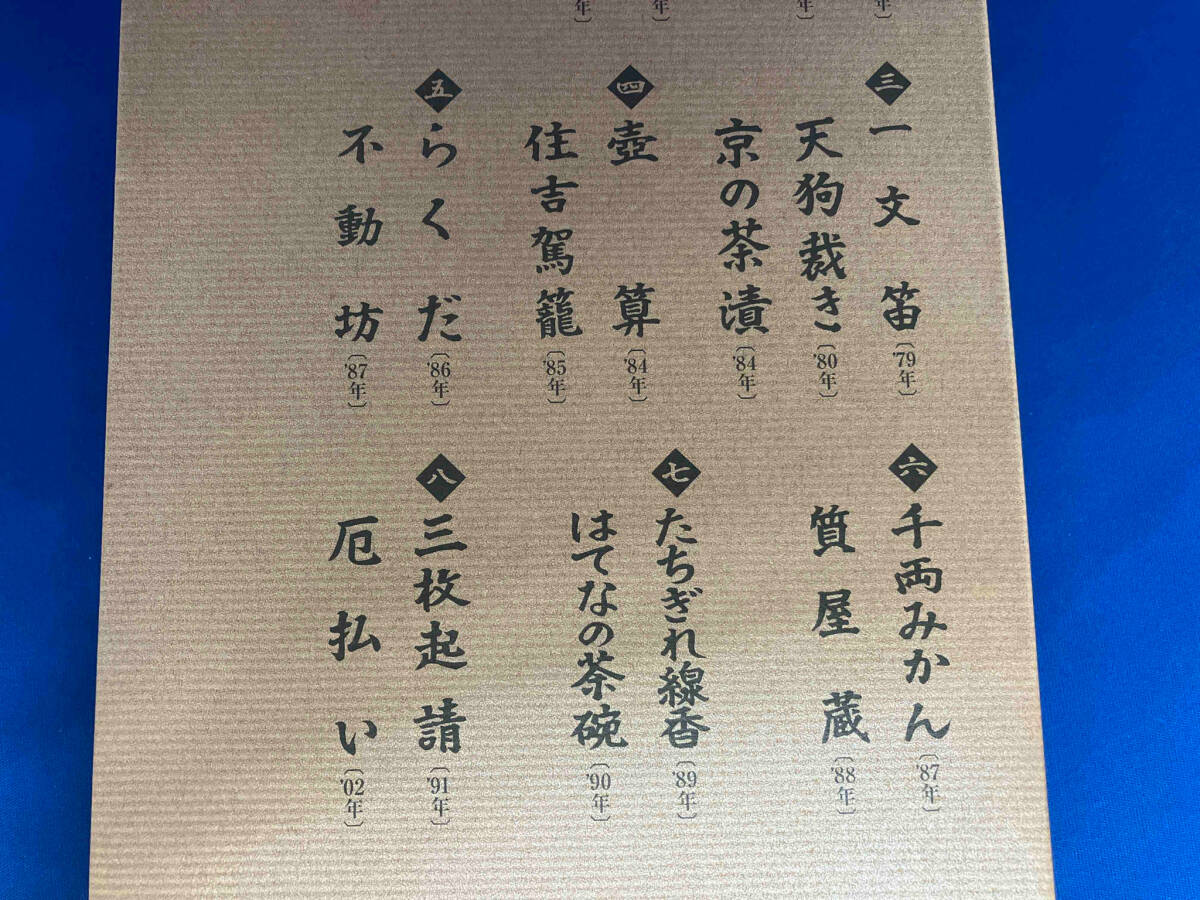 年〕
年〕
年〕
年〕
三
一文笛〔'79年〕
天狗裁き〔'80年〕
京の茶漬〔'84年〕
四
壺算〔'84年〕
住吉駕籠〔'85年〕
五
らくだ〔'86年〕
不動坊〔'87年〕
六
千両みかん〔'87年〕
質屋蔵〔'88年〕
七
たちぎれ線香〔'89年〕
はてなの茶碗〔'90年〕
八
三枚起請〔'91年〕
厄払い〔'02年〕